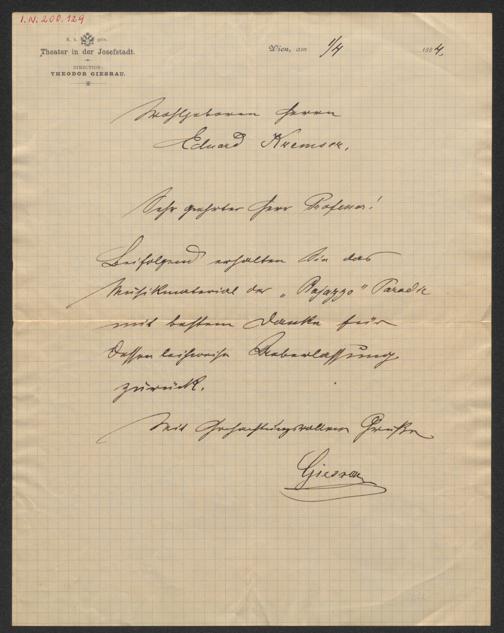 I.N. 200.129
K. k. priv.
Theater in der Josefstadt.
DIRECTION:
THEODOR GIESRAU.
Wien, am 1/4 1884.
Wohlgeboren Herrn
Eduard Kremser.
Sehr geehrter Herr Professor!
Beifolgend erhalten Sie das
Musikmaterial der „Bajazzo" Parodie
mit bestem Danke für
dessen leihweise Ueberlassung
zurück.
Mit hochachtungsvollem Gruße
Giesrau